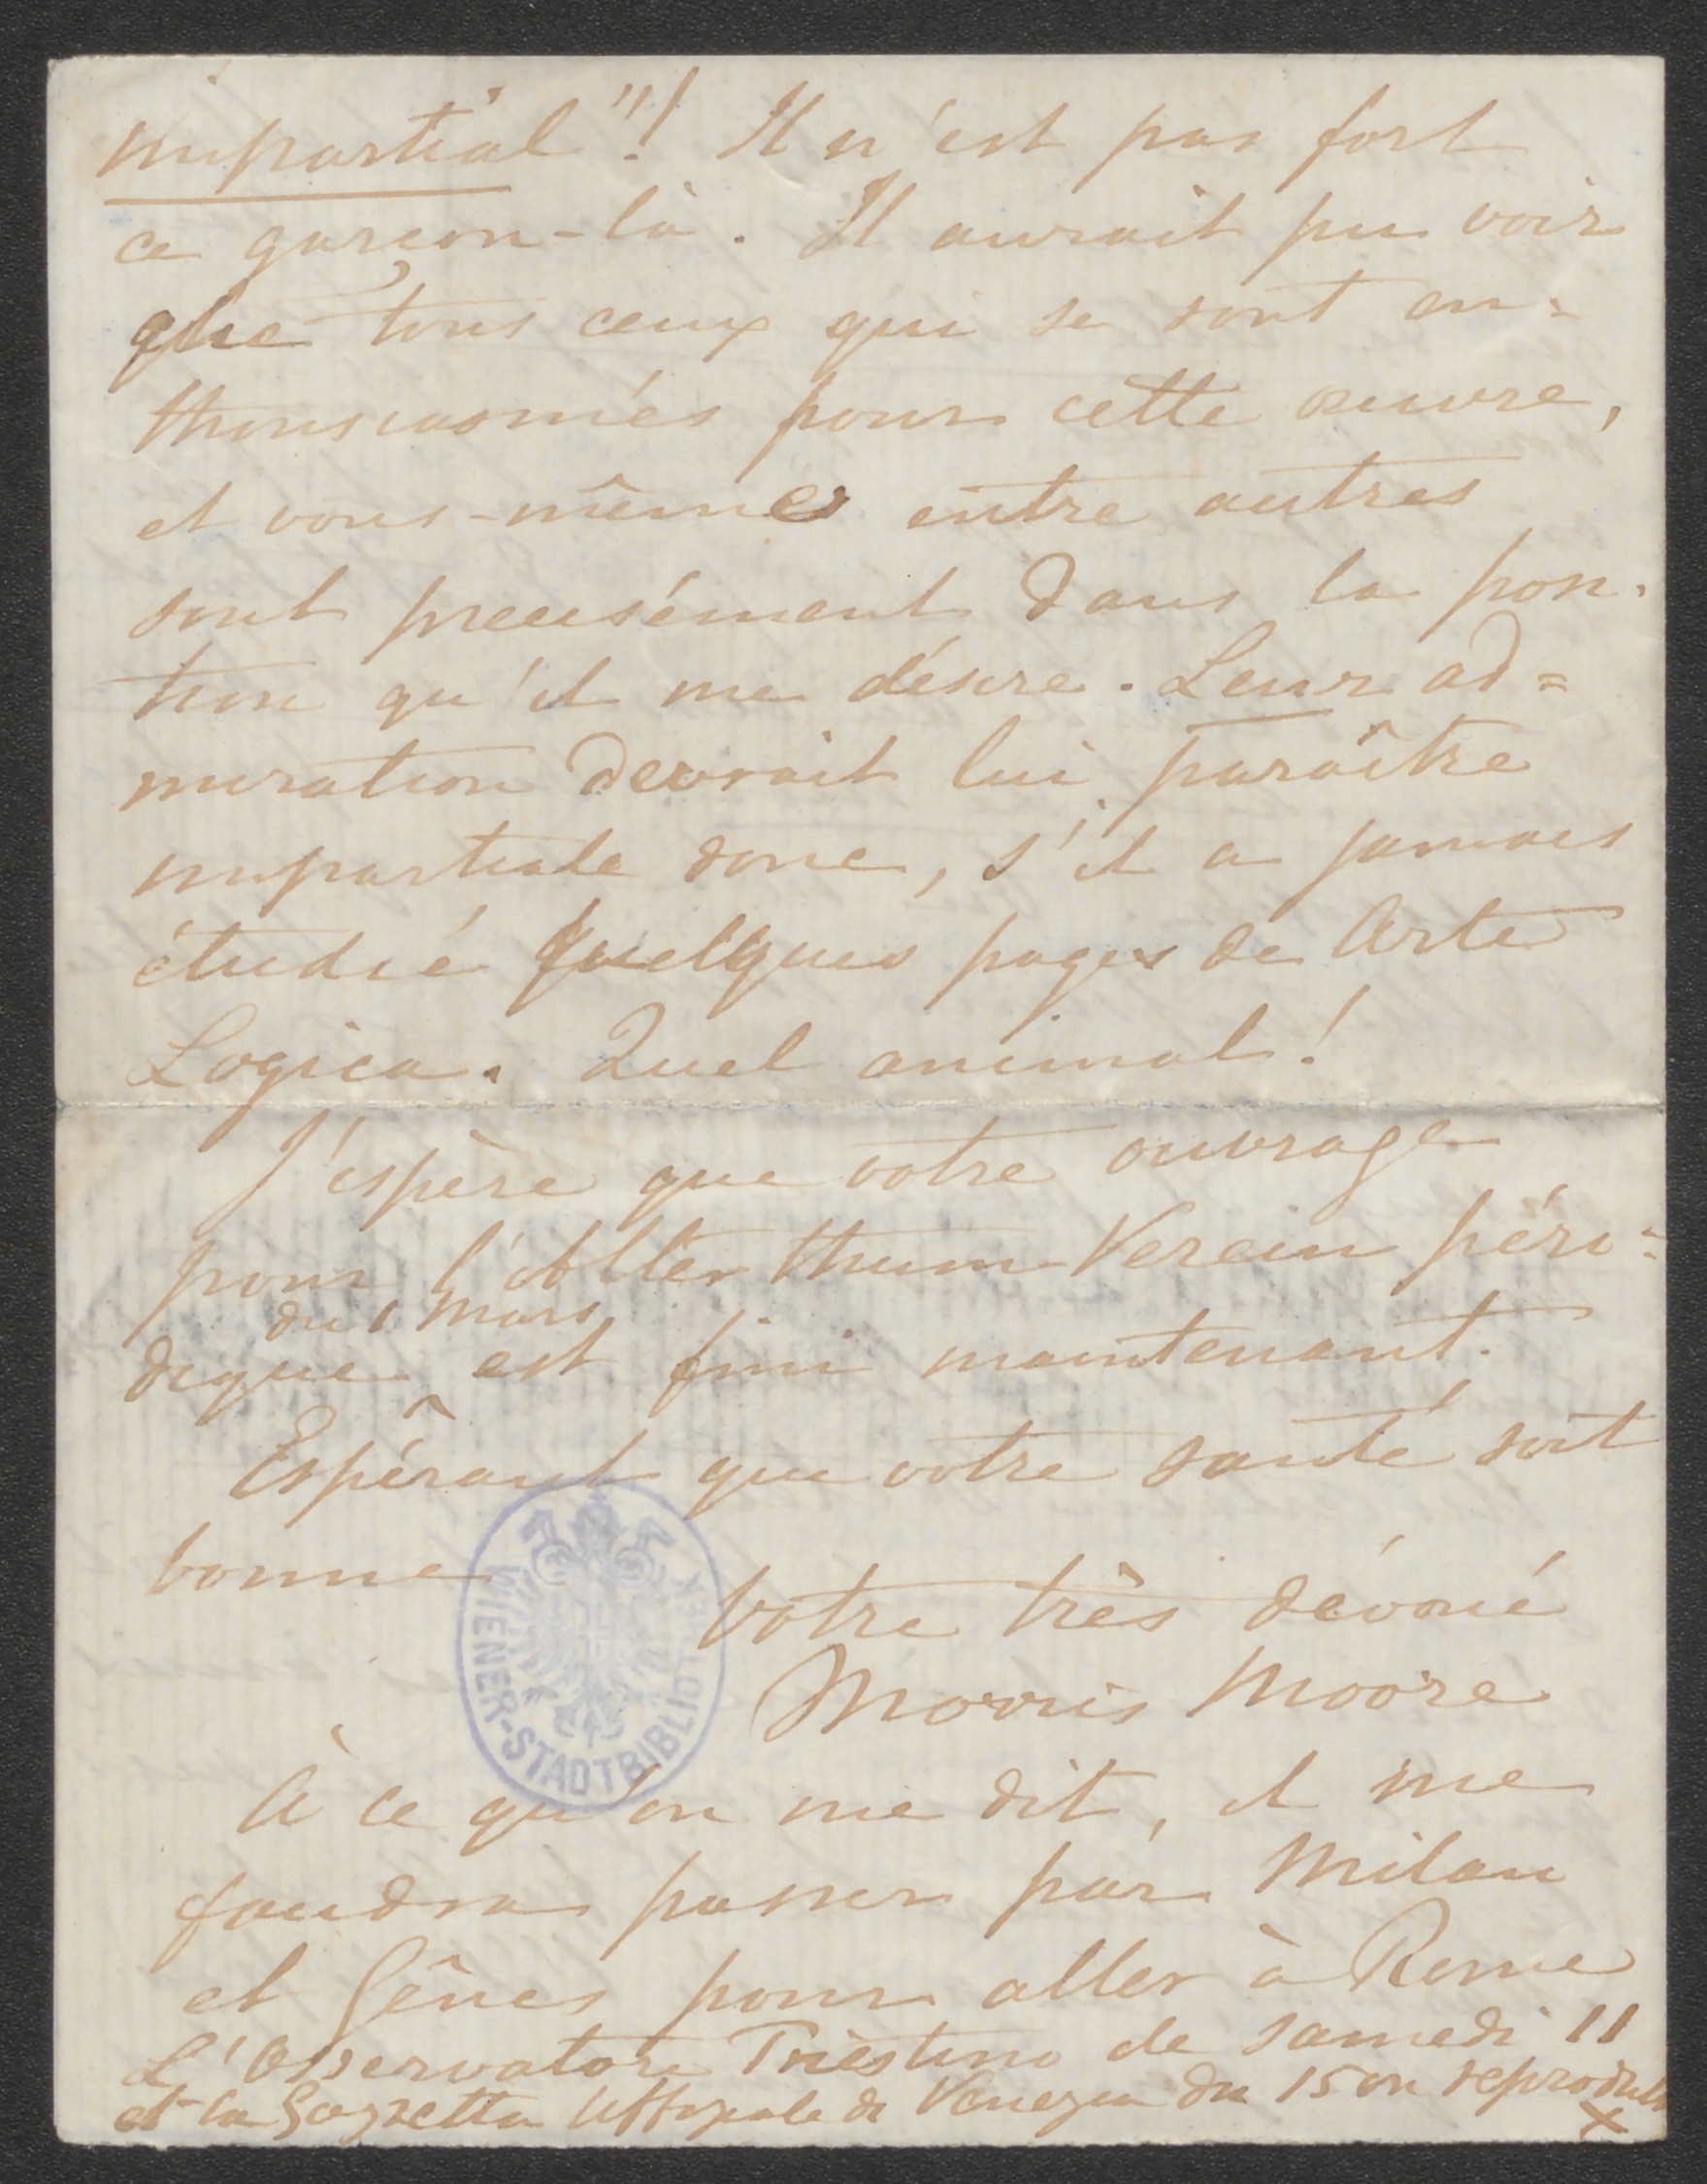 impartial"! Il n'est pas fort
ce garçon-là. Il aurait pu voir
que tous ceux qui se sont en=
thousiasmés pour cette œuvre,
et vous-mêmes entre autres
sont precisément dans la posi-
tion qu'il me désire. Leur ad=
miration devrait lui paraître
impartiale donc, s'il a jamais
étudié quelques pages de Arte
Logica. Quel animal!
J'espère que votre ouvrage
pour l'Alterthum-Verein péri=
du 1 Mars
dique est fini maintenant.
Espérant que votre santé soit
bonne
Votre très dévoué
Morris Moore
À ce qu'on me dit, il me
faudra passer par Milan
et Gênes pour aller à Rome
L'Osservatore Triestino de samedi 11
et la Gazzetta Uffiziale di Venezia du 15 on reproduit
X
WIENER-STADTBIBLIOTHEK